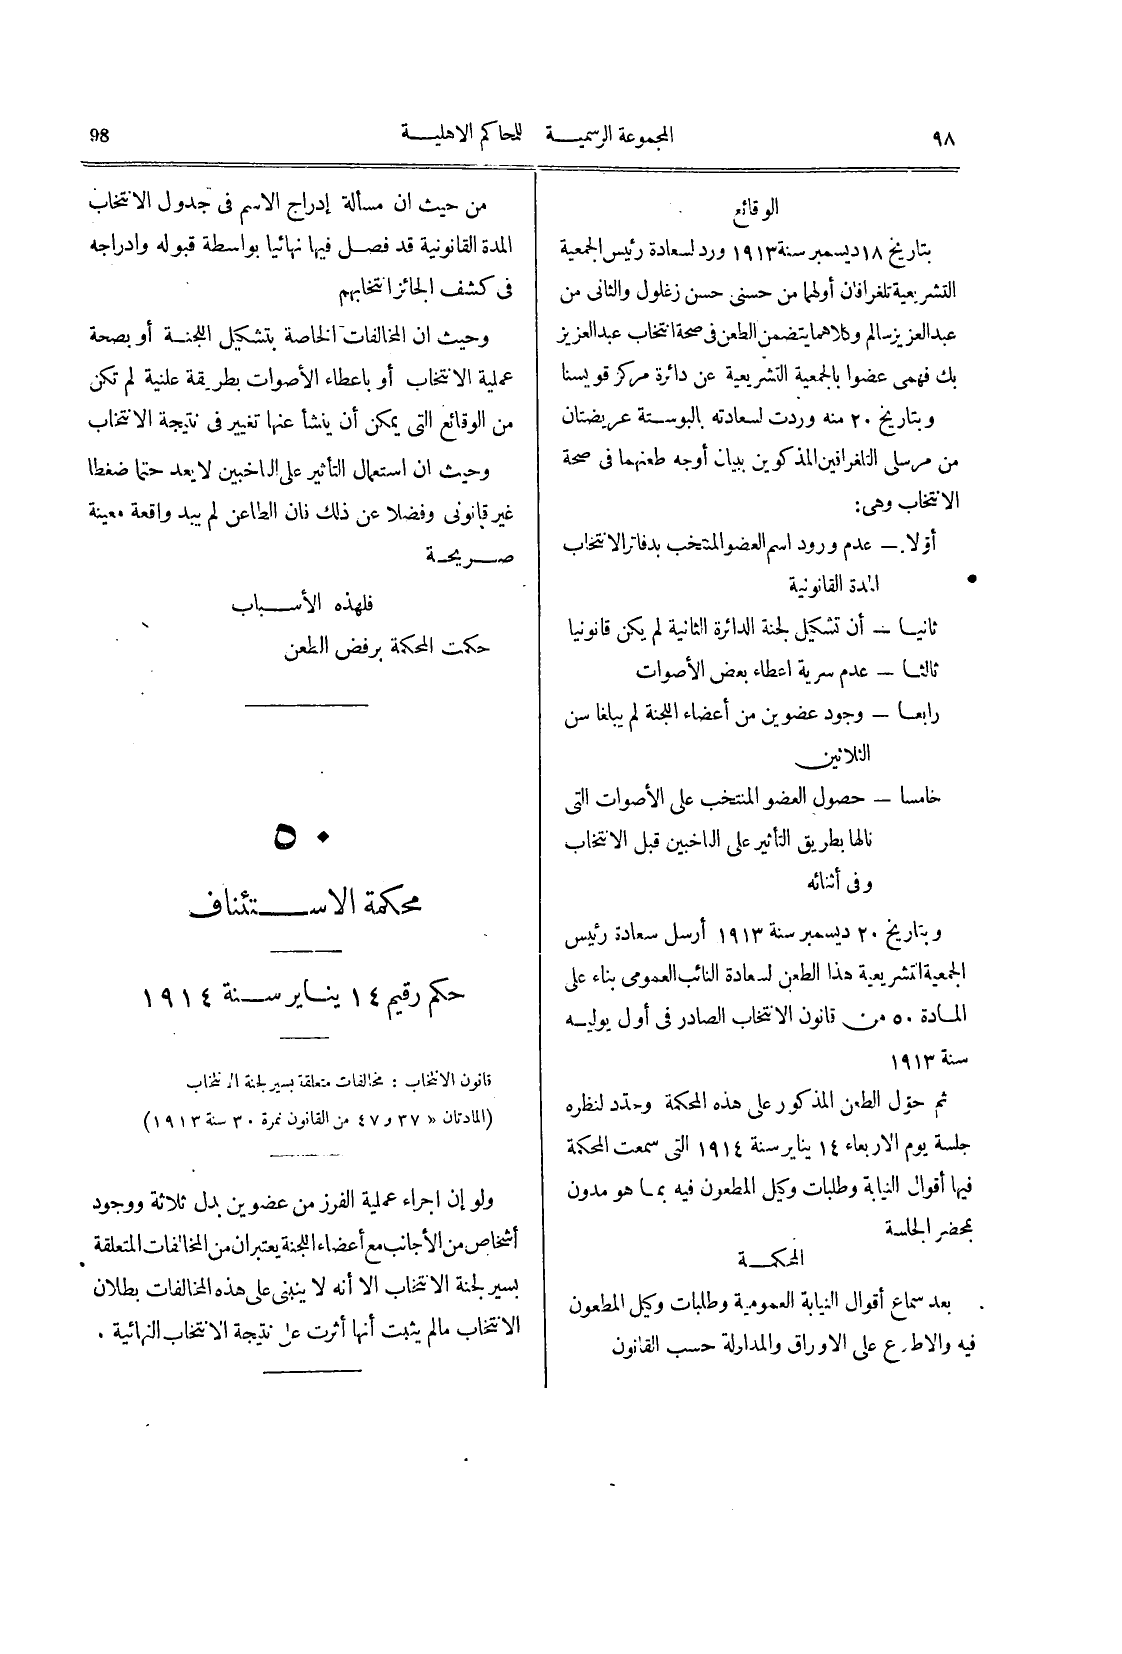 ٩٨ المجموعة الرسمية للمحاكم الاهلية 98
الوقائع
بتاريخ ١٨ ديسمبر سنة ١٩١٣ ورد لسعادة رئيس الجمعية
التشريعية تلغرافان أولهما من حسنى حسن زغلول والثانى من
عبد العزيز سالم وكلاهما يتضمن الطعن فى صحة انتخاب عبد العزيز
بك فهمى عضوا بالجمعية التشريعية عن دائرة مركز قويسنا
وبتاريخ ٢٠ منه وردت لسعادته بالبوستة عريضتان
من مرسلى التلغرافين المذكورين ببيان أوجه طعنهما فى صحة
الانتخاب وهى:
أوّلا — عدم ورود اسم العضو المنتخب بدفاتر الانتخاب
المدة القانونية
ثانيا — أن تشكيل لجنة الدائرة الثانية لم يكن قانونيا
ثالثا — عدم سرية اعطاء بعض الأصوات
رابعا — وجود عضوين من أعضاء اللجنة لم يبلغا سن
الثلاثين
خامسا — حصول العضو المنتخب على الأصوات التى
نالها بطريق التأثير على الناخبين قبل الانتخاب
وفى أثنائه
وبتاريخ ٢٠ ديسمبر سنة ١٩١٣ أرسل سعادة رئيس
الجمعية التشريعية هذا الطعن لسعادة النائب العمومى بناء على
المادة ٥٠ من قانون الانتخاب الصادر فى أول يوليه
سنة ١٩١٣
ثم حوّل الطعن المذكور على هذه المحكمة وحدّد لنظره
جلسة يوم الاربعاء ١٤ يناير سنة ١٩١٤ التى سمعت المحكمة
فيها أقوال النيابة وطلبات وكيل المطعون فيه بما هو مدون
بمحضر الجلسة
المحكمة
بعد سماع أقوال النيابة العمومية وطلبات وكيل المطعون
فيه والاطلاع على الاوراق والمداولة حسب القانون
من حيث ان مسألة إدراج الاسم فى جدول الانتخاب
المدة القانونية قد فصل فيها نهائيا بواسطة قبوله وادراجه
فى كشف الجائز انتخابهم
وحيث ان المخالفات الخاصة بتشكيل اللجنة أو بصحة
عملية الانتخاب أو باعطاء الأصوات بطريقة علنية لم تكن
من الوقائع التى يمكن أن ينشأ عنها تغيير فى نتيجة الانتخاب
وحيث ان استعمال التأثير على الناخبين لا يعد حتما ضغطا
غير قانونى وفضلا عن ذلك فان الطاعن لم يبد واقعة معينة
صريحة
فلهذه الأسباب
حكمت المحكمة برفض الطعن
٥٠
محكمة الاستئناف
حكم رقيم ١٤ يناير سنة ١٩١٤
قانون الانتخاب : مخالفات متعلقة بسير لجنة الانتخاب
(المادتان « ٣٧ و ٤٧ من القانون نمرة ٣٠ سنة ١٩١٣)
ولو إن اجراء عملية الفرز من عضوين بدل ثلاثة ووجود
أشخاص من الأجانب مع أعضاء اللجنة يعتبران من المخالفات المتعلقة
بسير لجنة الانتخاب الا أنه لا ينبنى على هذه المخالفات بطلان
الانتخاب مالم يثبت أنها أثرت على نتيجة الانتخاب النهائية .